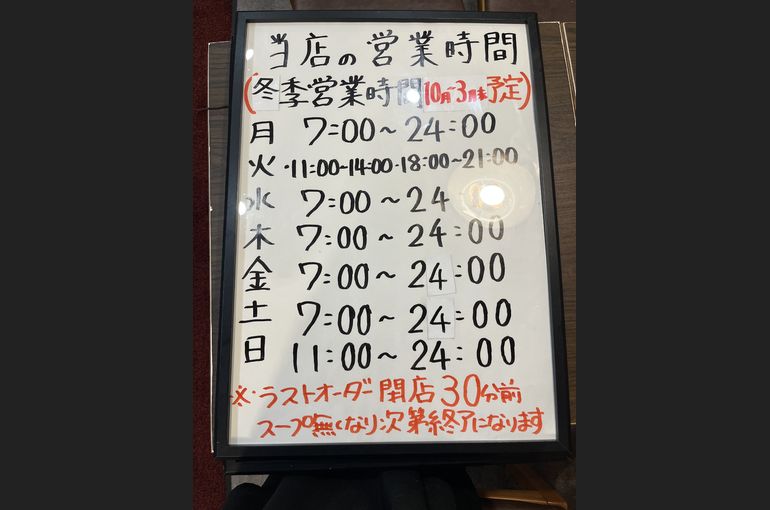 当店の営業時間
(冬季営業時間10月~3月末予定)
月 7:00~24:00
火 ・11:00~14:00・18:00~21:00
水 7:00~24
木 7:00~24:00
金 7:00~24:00
土 7:00~24:00
日 11:00~24:00
※・ラストオーダー閉店30分前
スープ無くなり次第終了になります